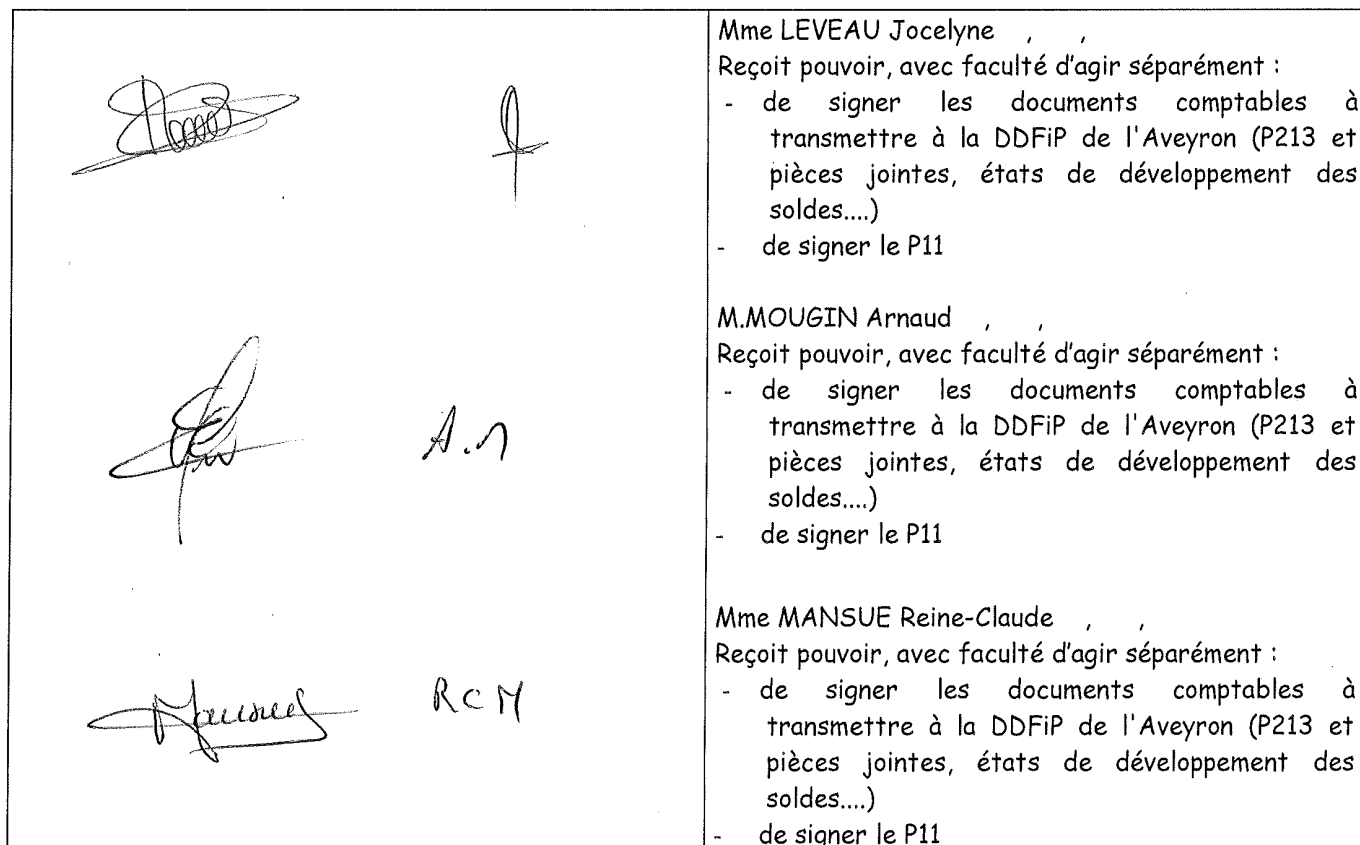 Mme LEVEAU Jocelyne , ,
Reçoit pouvoir, avec faculté d'agir séparément :
- de signer les documents comptables à
transmettre à la DDFiP de l'Aveyron (P213 et
pièces jointes, états de développement des
soldes....)
- de signer le P11
M.MOUGIN Arnaud , ,
Reçoit pouvoir, avec faculté d'agir séparément :
- de signer les documents comptables à
transmettre à la DDFiP de l'Aveyron (P213 et
pièces jointes, états de développement des
soldes....)
- de signer le P11
A.M
Mme MANSUE Reine-Claude , ,
Reçoit pouvoir, avec faculté d'agir séparément :
- de signer les documents comptables à
transmettre à la DDFiP de l'Aveyron (P213 et
pièces jointes, états de développement des
soldes....)
- de signer le P11
RCM